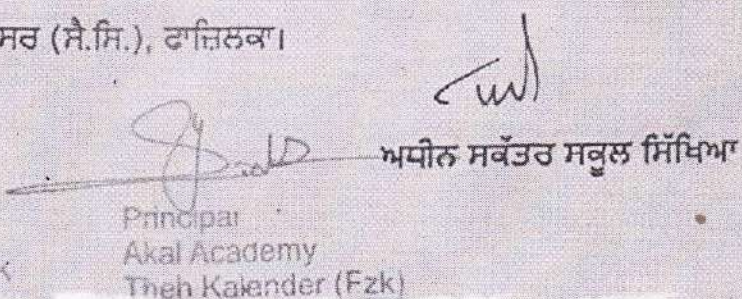 ਸਰ (ਸੈ.ਸਿ.), ਫਾਜ਼ਿਲਕਾ।
ਅਧੀਨ ਸਕੱਤਰ ਸਕੂਲ ਸਿੱਖਿਆ
Principal
Akal Academy
Theh Kalender (Fzk)